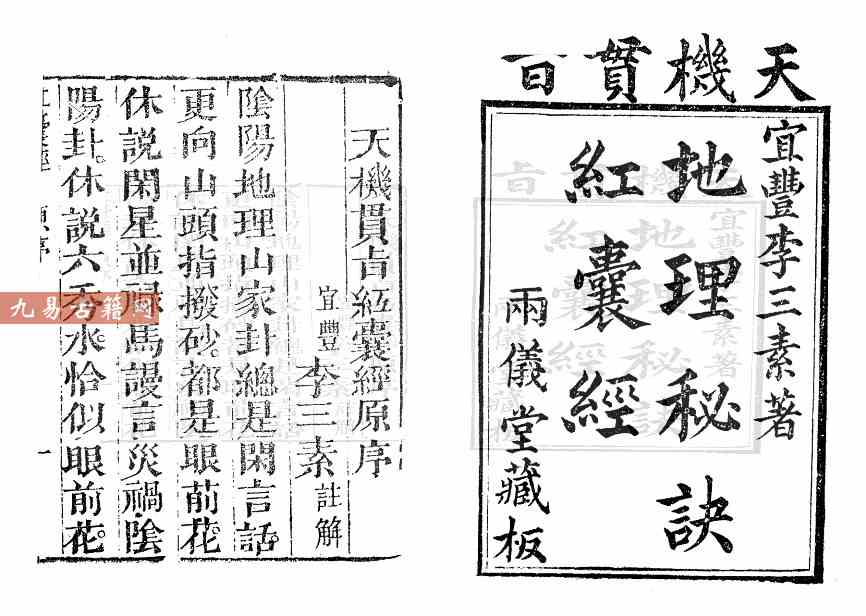 天機貫旨
宜豐李三素著
地理秘訣
紅囊經
兩儀堂藏板
天機貫旨紅囊經原序
宜豐李三素註解
陰陽地理山家卦總是閑言話
更向山頭指撥砂。都是眼前花
休說閑星並祿馬謾言災禍陰
陽卦。休說六秀水。恰似眼前花。
紅囊經 原序 一
九易古籍网